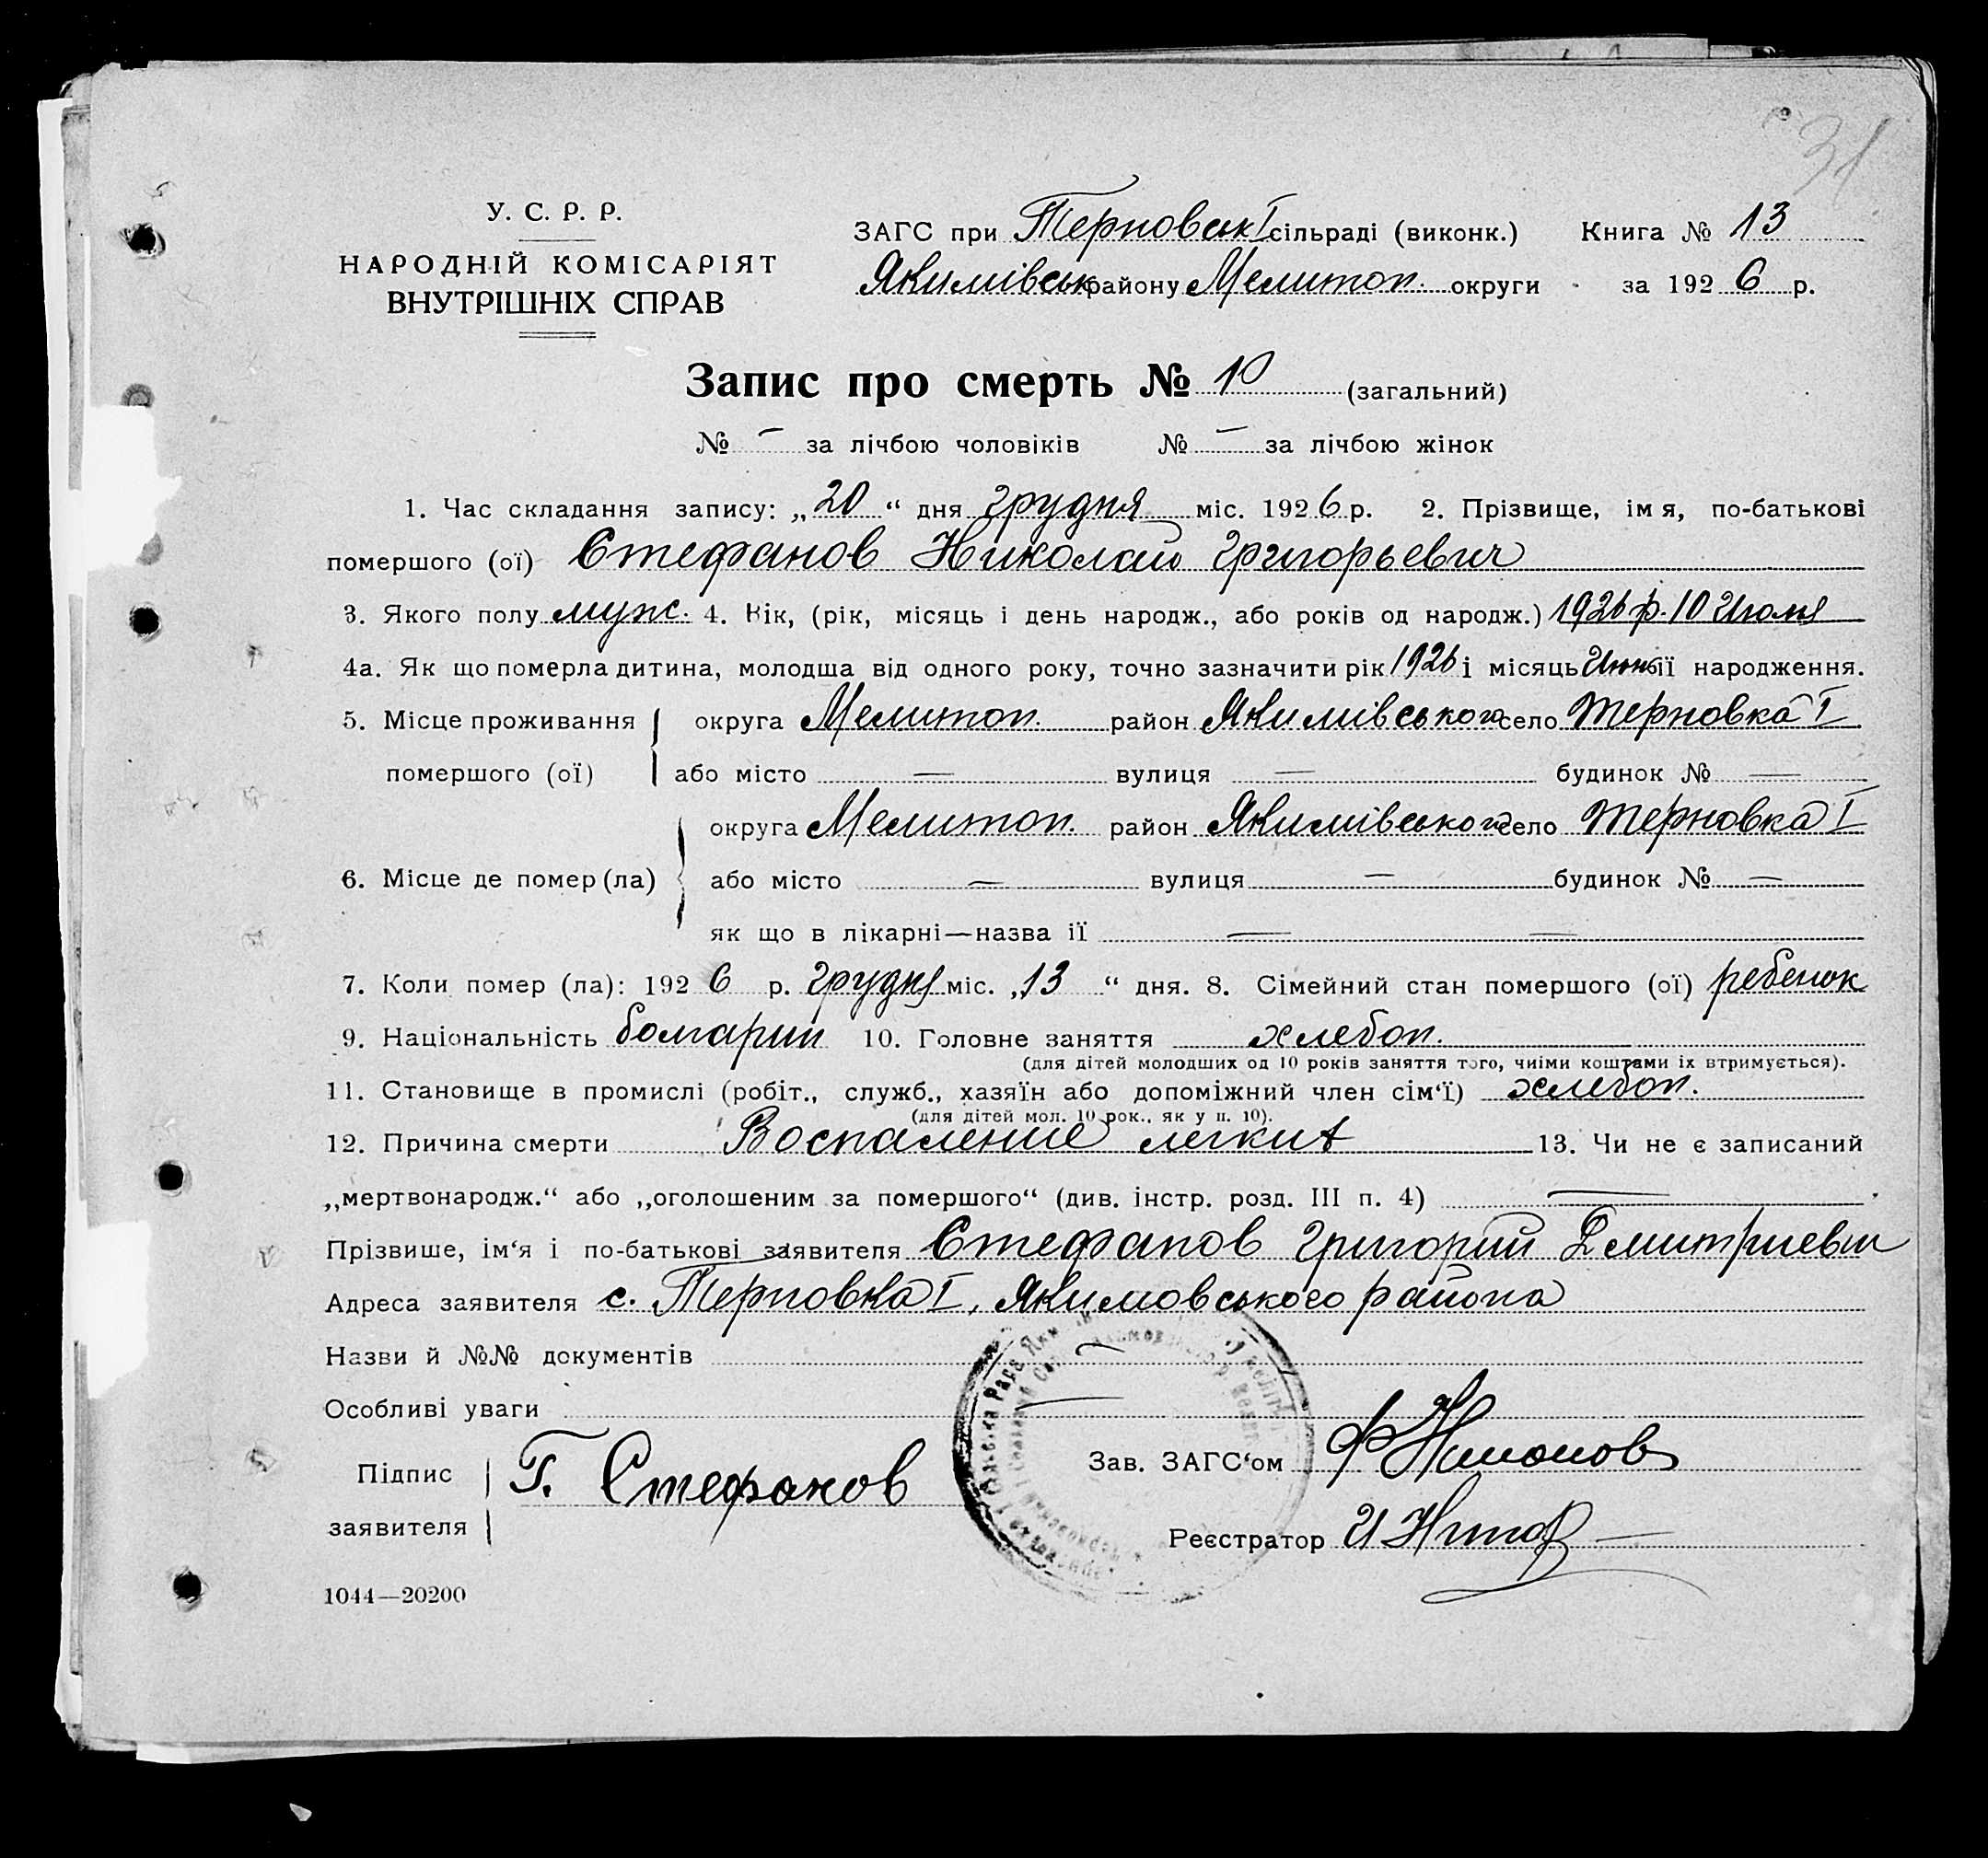 31
У. С. Р. Р.
НАРОДНІЙ КОМІСАРІЯТ
ВНУТРІШНІХ СПРАВ
ЗАГС при Терновськ I сільраді (виконк.) Книга № 13
Якимівськ району Мелитоп. округи за 1926 р.
Запис про смерть № 10 (загальний)
№ – за лічбою чоловіків № – за лічбою жінок
1. Час складання запису: „20“ дня грудня міс. 1926 р. 2. Прізвище, імя, по-батькові
помершого (ої) Стефанов Николай Григорьевич
3. Якого полу мужс. 4. Вік, (рік, місяць і день народж., або років од народж.) 1926 р. 10 Июля
4а. Як що померла дитина, молодша від одного року, точно зазначити рік 1926 і місяць її народження.
5. Місце проживання округа Мелитоп. район Якимівського село Терновка I
помершого (ої) або місто — вулиця — будинок № —
округа Мелитоп. район Якимівського село Терновка I
6. Місце де помер (ла) або місто — вулиця — будинок № —
як що в лікарні—назва ії — —
7. Коли помер (ла): 1926 р. грудня міс. „13“ дня. 8. Сімейний стан помершого (ої) ребенок
9. Національність болгарин 10. Головне заняття хлебоп.
(для дітей молодших од 10 років заняття того, чиїми коштами іх втримується).
11. Становище в промислі (робіт., служб., хазяїн або допоміжний член сім‘ї) хлебоп.
(для дітей мол. 10 рок., як у п. 10).
12. Причина смерти Воспаление легких 13. Чи не є записаний
„мертвонародж.“ або „оголошеним за помершого“ (див. інстр. розд. III п. 4) —
Прізвише, ім‘я і по-батькові заявителя Стефанов Григорий Дмитриевич
Адреса заявителя с. Терновка I, Якимовського района
Назви й №№ документів —
Особливі уваги —
Підпис Г. Стефанов Зав. ЗАГС‘ом
заявителя Реєстратор
1044—20200